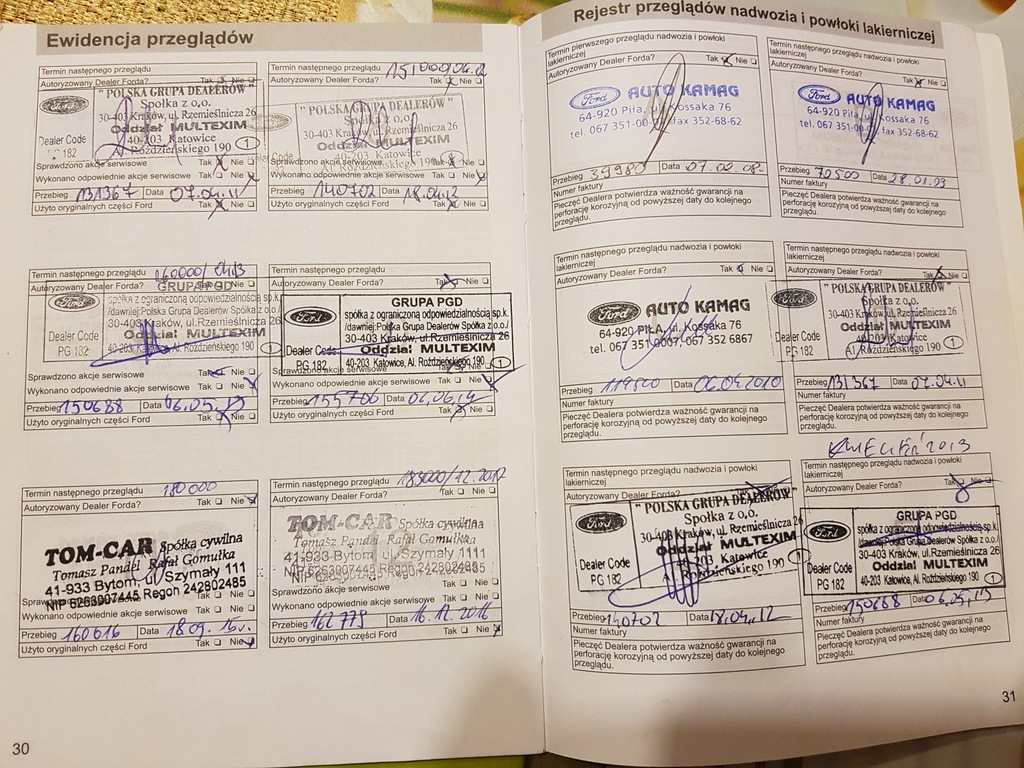 Ewidencja przeglądów
Termin następnego przeglądu
Autoryzowany Dealer Forda? Tak Nie
Ford
" POLSKA GRUPA DEALERÓW "
Spółka z o.o.
30-403 Kraków, ul. Rzemieślnicza 26
Oddział MULTEXIM
Dealer Code
PG 182
40-203 Katowice
Al. Roździeńskiego 190 1
Sprawdzono akcje serwisowe Tak Nie
Wykonano odpowiednie akcje serwisowe Tak Nie
Przebieg 131367 Data 07.04.11
Użyto oryginalnych części Ford Tak Nie
Termin następnego przeglądu 151000/04.12
Autoryzowany Dealer Forda? Tak Nie
" POLSKA GRUPA DEALERÓW "
Spółka z o.o.
30-403 Kraków, ul. Rzemieślnicza 26
Oddział MULTEXIM
40-203 Katowice
Al. Roździeńskiego 190 1
Sprawdzono akcje serwisowe Tak Nie
Wykonano odpowiednie akcje serwisowe Tak Nie
Przebieg 140702 Data 18.04.12
Użyto oryginalnych części Ford Tak Nie
Termin następnego przeglądu 160000/04.13
Autoryzowany Dealer Forda? Tak Nie
GRUPA PGD
Ford
spółka z ograniczoną odpowiedzialnością sp.k.
/dawniej:Polska Grupa Dealerów Spółka z o.o./
30-403 Kraków, ul.Rzemieślnicza 26
Dealer Code
Oddział MULTEXIM
PG 182
40-203 Katowice, Al. Roździeńskiego 190 1
Sprawdzono akcje serwisowe Tak Nie
Wykonano odpowiednie akcje serwisowe Tak Nie
Przebieg 150688 Data 06.05.13
Użyto oryginalnych części Ford Tak Nie
Termin następnego przeglądu
Autoryzowany Dealer Forda? Tak Nie
GRUPA PGD
Ford
spółka z ograniczoną odpowiedzialnością sp.k.
/dawniej:Polska Grupa Dealerów Spółka z o.o./
30-403 Kraków, ul.Rzemieślnicza 26
Dealer Code
Oddział MULTEXIM
PG 182
40-203 Katowice, Al. Roździeńskiego 190 1
Sprawdzono akcje serwisowe
Wykonano odpowiednie akcje serwisowe Tak Nie
Przebieg 155706 Data 02.06.14
Użyto oryginalnych części Ford Tak Nie
Termin następnego przeglądu 180000
Autoryzowany Dealer Forda? Tak Nie
TOM-CAR Spółka cywilna
Tomasz Pandel Rafał Gomułka
41-933 Bytom, ul. Szymały 111
NIP 6263007445 Regon 242802485
Wykonano odpowiednie akcje serwisowe Tak Nie
Przebieg 160616 Data 18.09.15
Użyto oryginalnych części Ford Tak Nie
Termin następnego przeglądu 183000/12.2017
Autoryzowany Dealer Forda? Tak Nie
TOM-CAR Spółka cywilna
Tomasz Pandel Rafał Gomułka
41-933 Bytom, ul. Szymały 111
Wykonano odpowiednie akcje serwisowe Tak Nie
Przebieg 162775 Data 16.12.2016
Użyto oryginalnych części Ford Tak Nie
30
Rejestr przeglądów nadwozia i powłoki lakierniczej
Termin pierwszego przeglądu nadwozia i powłoki
lakierniczej
Autoryzowany Dealer Forda? Tak Nie
Ford AUTO KAMAG
64-920 Piła, ul. Kossaka 76
tel. 067 351-00 fax 352-68-62
Przebieg 39980 Data 07.02.08
Numer faktury
Pieczęć Dealera potwierdza ważność gwarancji na
perforację korozyjną od powyższej daty do kolejnego
przeglądu.
Termin następnego przeglądu nadwozia i powłoki
lakierniczej
Autoryzowany Dealer Forda? Tak Nie
Ford AUTO KAMAG
64-920 Piła, ul. Kossaka 76
tel. 067 351-00 fax 352-68-62
Przebieg 70500 Data 28.01.09
Numer faktury
Pieczęć Dealera potwierdza ważność gwarancji na
perforację korozyjną od powyższej daty do kolejnego
przeglądu.
Termin następnego przeglądu nadwozia i powłoki
lakierniczej
Autoryzowany Dealer Forda? Tak Nie
Ford AUTO KAMAG
64-920 PIŁA, ul. Kossaka 76
tel. 067 351-0007, 067 352 6867
Przebieg 119800 Data 06.05.2010
Numer faktury
Pieczęć Dealera potwierdza ważność gwarancji na
perforację korozyjną od powyższej daty do kolejnego
przeglądu.
Termin następnego przeglądu nadwozia i powłoki
lakierniczej
Autoryzowany Dealer Forda? Tak Nie
Ford
" POLSKA GRUPA DEALERÓW "
Spółka z o.o.
30-403 Kraków, ul. Rzemieślnicza 26
Oddział MULTEXIM
Dealer Code
PG 182
40-203 Katowice
Al. Roździeńskiego 190 1
Przebieg 131367 Data 07.04.11
Numer faktury
Pieczęć Dealera potwierdza ważność gwarancji na
perforację korozyjną od powyższej daty do kolejnego
przeglądu.
Termin następnego przeglądu nadwozia i powłoki
lakierniczej
Autoryzowany Dealer Forda?
" POLSKA GRUPA DEALERÓW "
Ford
Spółka z o.o.
30-403 Kraków, ul. Rzemieślnicza 26
Oddział MULTEXIM
Dealer Code
PG 182
40-203 Katowice
Al. Roździeńskiego 190 1
Przebieg 140702 Data 18.04.12
Numer faktury
Pieczęć Dealera potwierdza ważność gwarancji na
perforację korozyjną od powyższej daty do kolejnego
przeglądu.
KWIECIEŃ'2013
Termin następnego przeglądu nadwozia i powłoki
lakierniczej
Autoryzowany Dealer Forda? Tak Nie
GRUPA PGD
Ford
spółka z ograniczoną odpowiedzialnością sp.k.
/dawniej:Polska Grupa Dealerów Spółka z o.o./
30-403 Kraków, ul.Rzemieślnicza 26
Dealer Code
Oddział MULTEXIM
PG 182
40-203 Katowice, Al. Roździeńskiego 190 1
Przebieg 150688 Data 06.05.13
Numer faktury
Pieczęć Dealera potwierdza ważność gwarancji na
perforację korozyjną od powyższej daty do kolejnego
przeglądu.
31